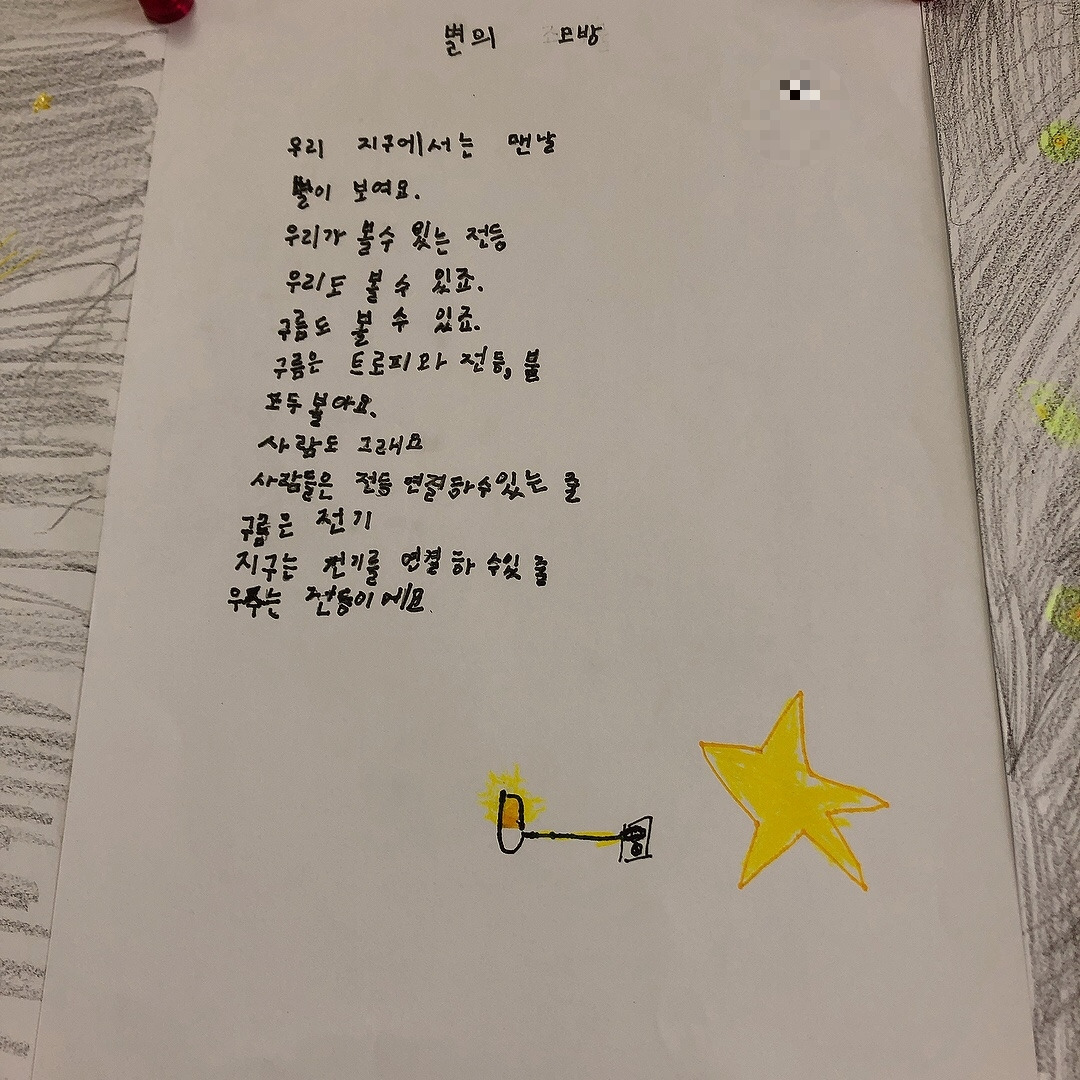 별의 모방
우리 지구에서는 맨날
별이 보여요.
우리가 볼수 있는 전등
우리도 볼 수 있죠.
구름도 볼 수 있죠.
구름은 트로피와 전등, 불
모두 봘아요.
사람도 그래요
사람들은 전등 연결하수있는 줄
구름은 전기
지구는 전기를 연결 하 수있 줄
우주는 전등이에요.